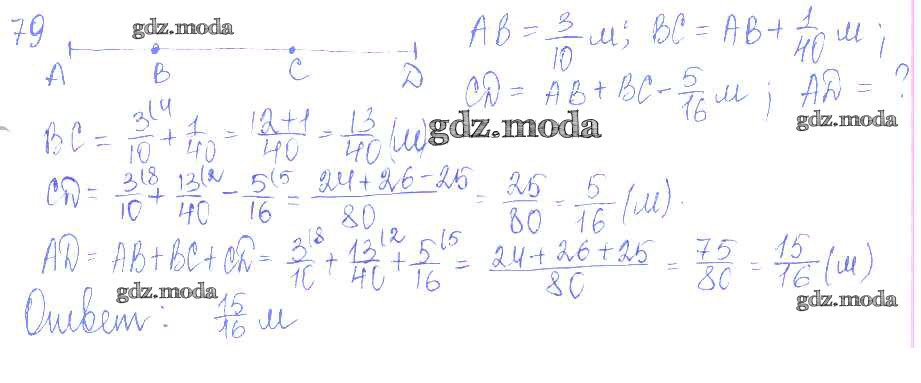 79 gdz.moda AB = 3/10 м; BC = AB + 1/40 м;
A B C D CD = AB + BC - 5/16 м; AD = ?
gdz.moda
BC = 3(4/10 + 1/40 = 12+1/40 = 13/40 (м) gdz.moda
CD = 3(8/10 + 13(2/40 - 5(5/16 = 24+26-25/80 = 25/80 = 5/16 (м).
AD = AB + BC + CD = 3(8/10 + 13(2/40 + 5(5/16 = 24+26+25/80 = 75/80 = 15/16 (м)
gdz.moda gdz.moda
Ответ: 15/16 м